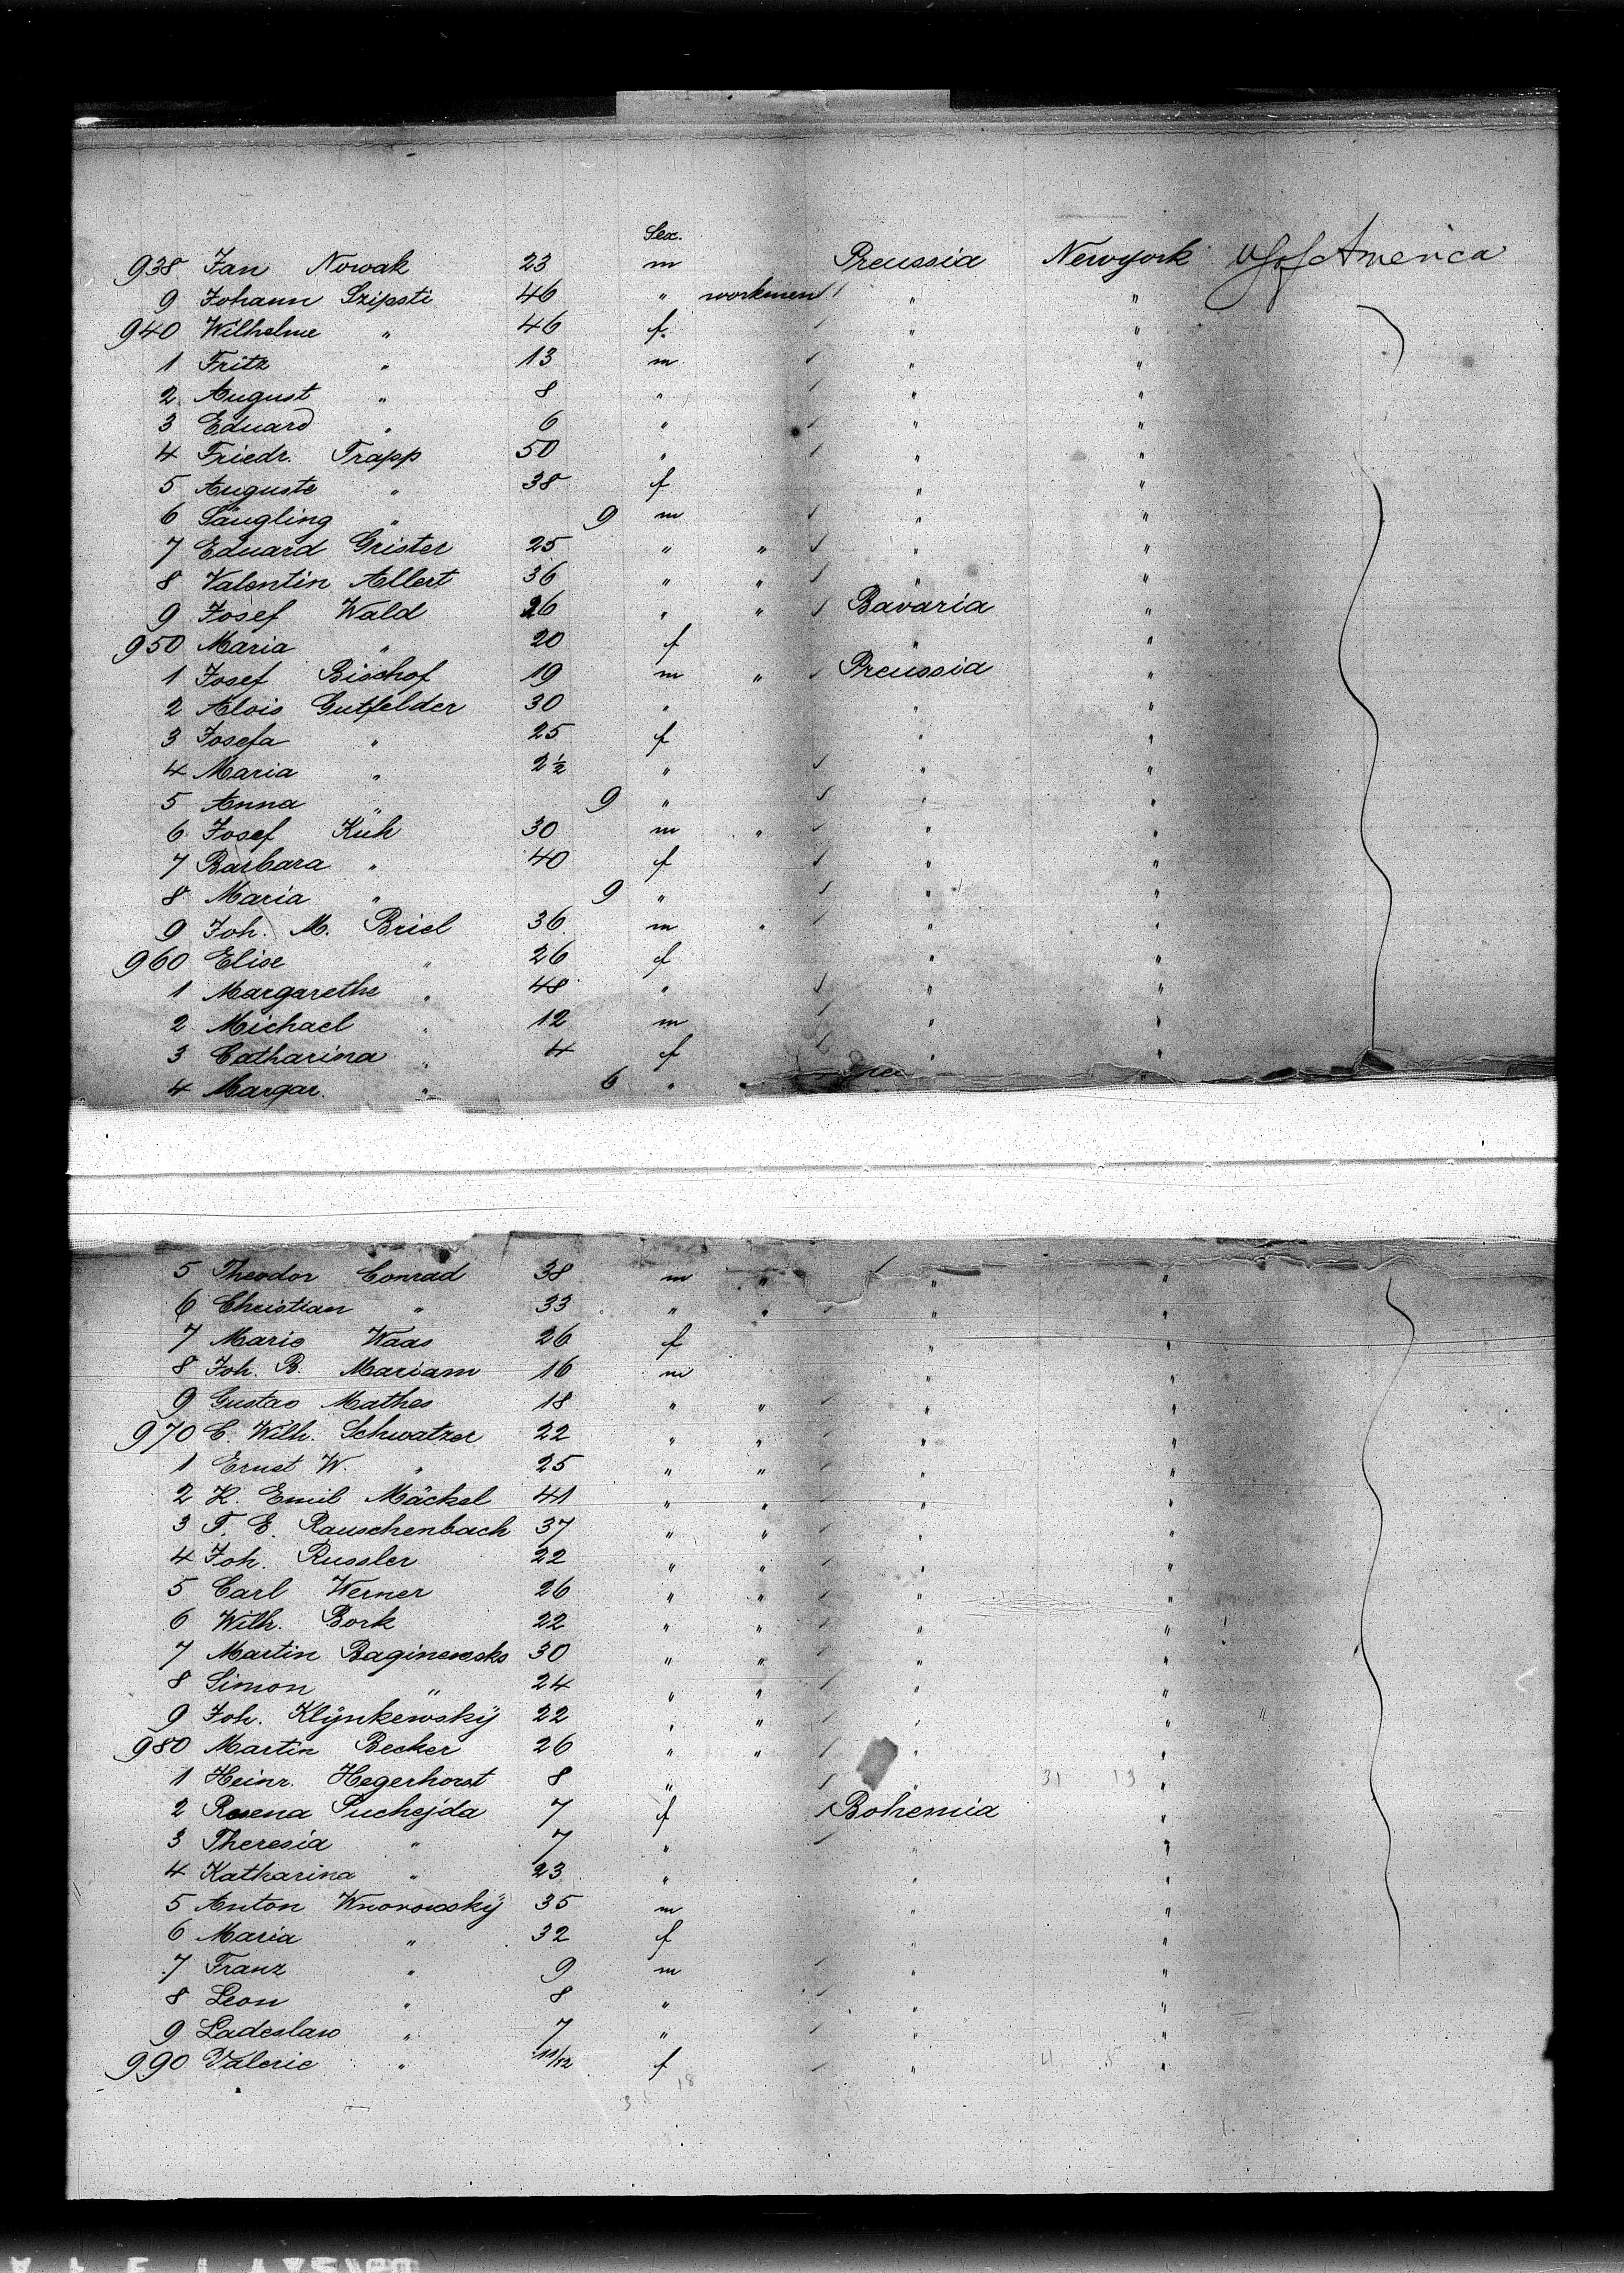 Sex.
938 Jan Nowak 23 m Preussia Newyork US of America
9 Johann Szipsti 46 " workmen " "
940 Wilhelme " 46 f. " "
1 Fritz " 13 m " "
2 August " 8 " " "
3 Eduard " 6 " " "
4 Friedr. Trapp 50 " " "
5 Auguste " 38 f " "
6 Säugling " 9 m " "
7 Eduard Grister 25 " " " "
8 Valentin Allert 36 " " " "
9 Josef Wald 26 " " Bavaria "
950 Maria " 20 f " "
1 Josef Bischof 19 m " Preussia "
2 Alois Gutfelder 30 " " "
3 Josefa " 25 f " "
4 Maria " 2½ " " "
5 Anna " 9 " " "
6 Josef Kuh 30 m " " "
7 Barbara " 40 f " "
8 Maria " 9 " " "
9 Joh. M. Briel 36 m " " "
960 Elise " 26 f " "
1 Margarethe " 48 " " "
2 Michael " 12 m " "
3 Catharina " 4 f " "
4 Margar. " 6 "
5 Theodor Conrad 38 m " " "
6 Christian " 33 " " " "
7 Marie Waas 26 f " "
8 Joh. B. Mariam 16 m " "
9 Gustav Mathes 18 " " " "
970 C. Wilh. Schwatzer 22 " " " "
1 Ernst W. " 25 " " " "
2 K. Emil Mäckel 41 " " " "
3 F. E. Rauschenbach 37 " " " "
4 Joh. Russler 22 " " " "
5 Carl Werner 26 " " " "
6 Wilh. Bork 22 " " " "
7 Martin Baginewsko 30 " " " "
8 Simon " 24 " " " "
9 Joh. Klÿnkewskÿ 22 " " " "
980 Martin Becker 26 " " " "
1 Heinr. Hegerhorst 8 " " "
2 Rosena Puchejda 7 f Bohemia "
3 Theresia " 7 " " "
4 Katharina " 23 " " "
5 Anton Wnorowskÿ 35 m " "
6 Maria " 32 f " "
7 Franz " 9 m " "
8 Leon " 8 " " "
9 Ladeslaw " 7 " " "
990 Valerie " 11/12 f " "